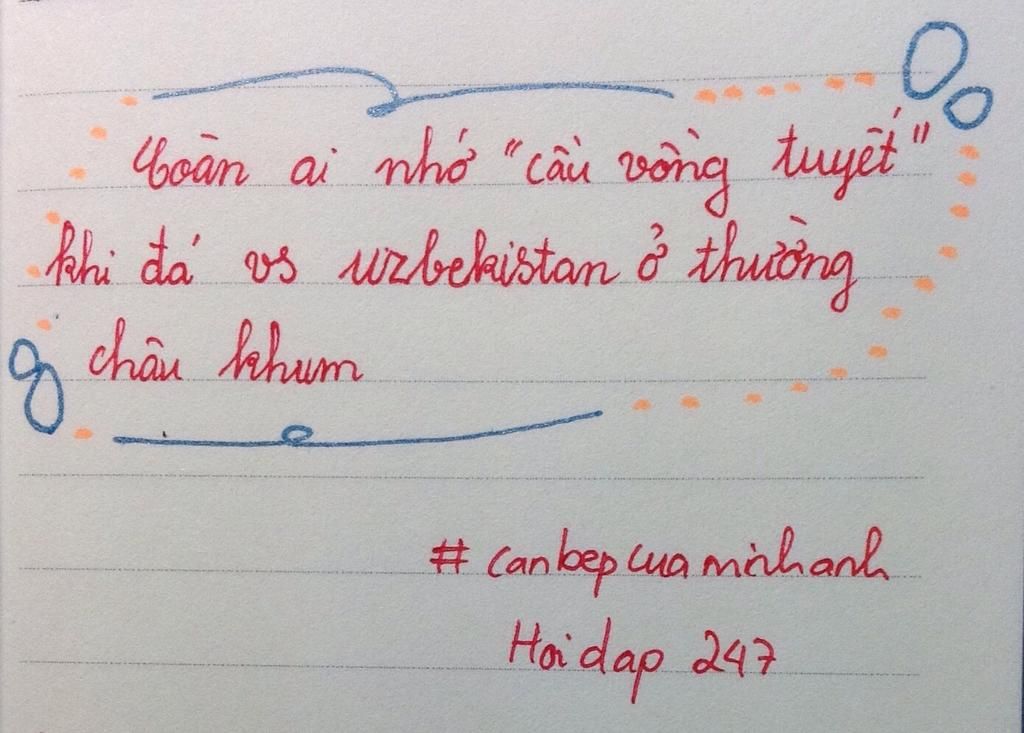 Còn ai nhớ "cầu vồng tuyết"
khi đá vs uzbekistan ở thường
châu khum
# canbepcuaminhanh
Hoidap 247